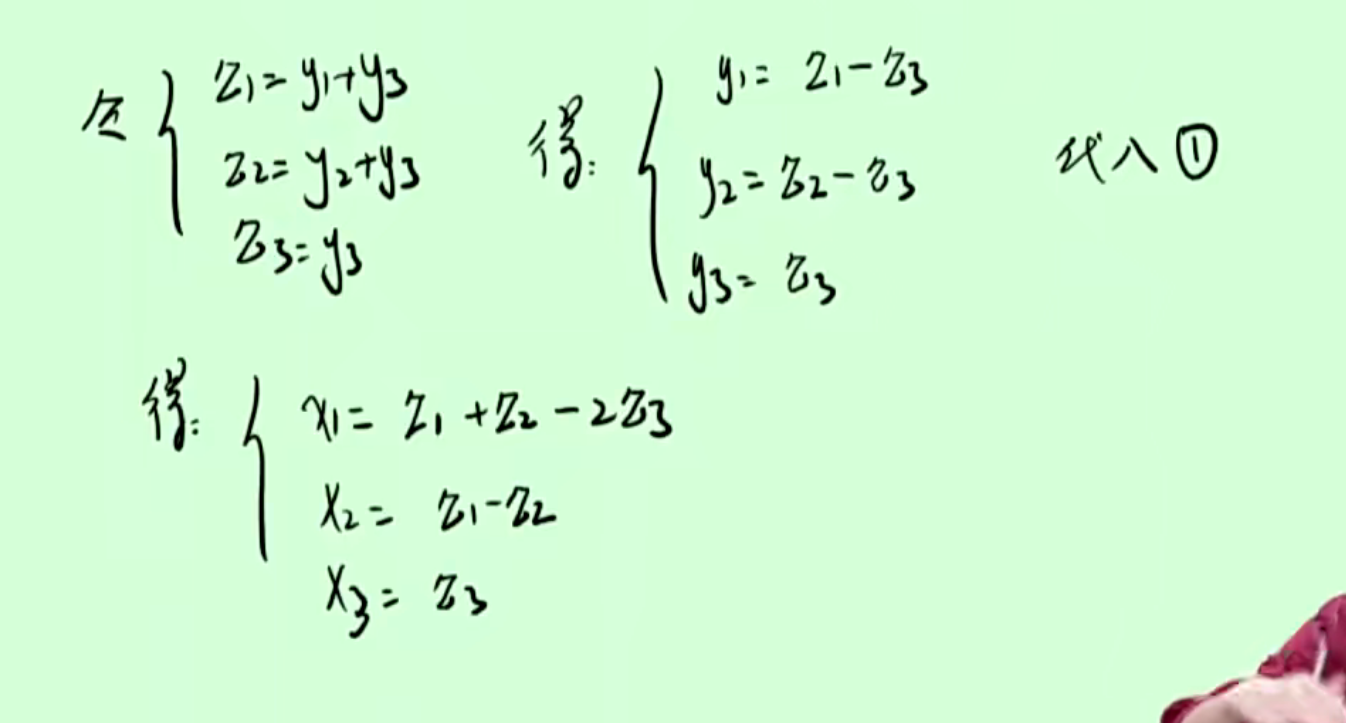 令 { z₁=y₁+y₃
z₂=y₂+y₃
z₃=y₃
得: { y₁= z₁-z₃
y₂=z₂-z₃
y₃= z₃
代入①
得: { x₁= z₁+z₂-2z₃
x₂= z₁-z₂
x₃= z₃